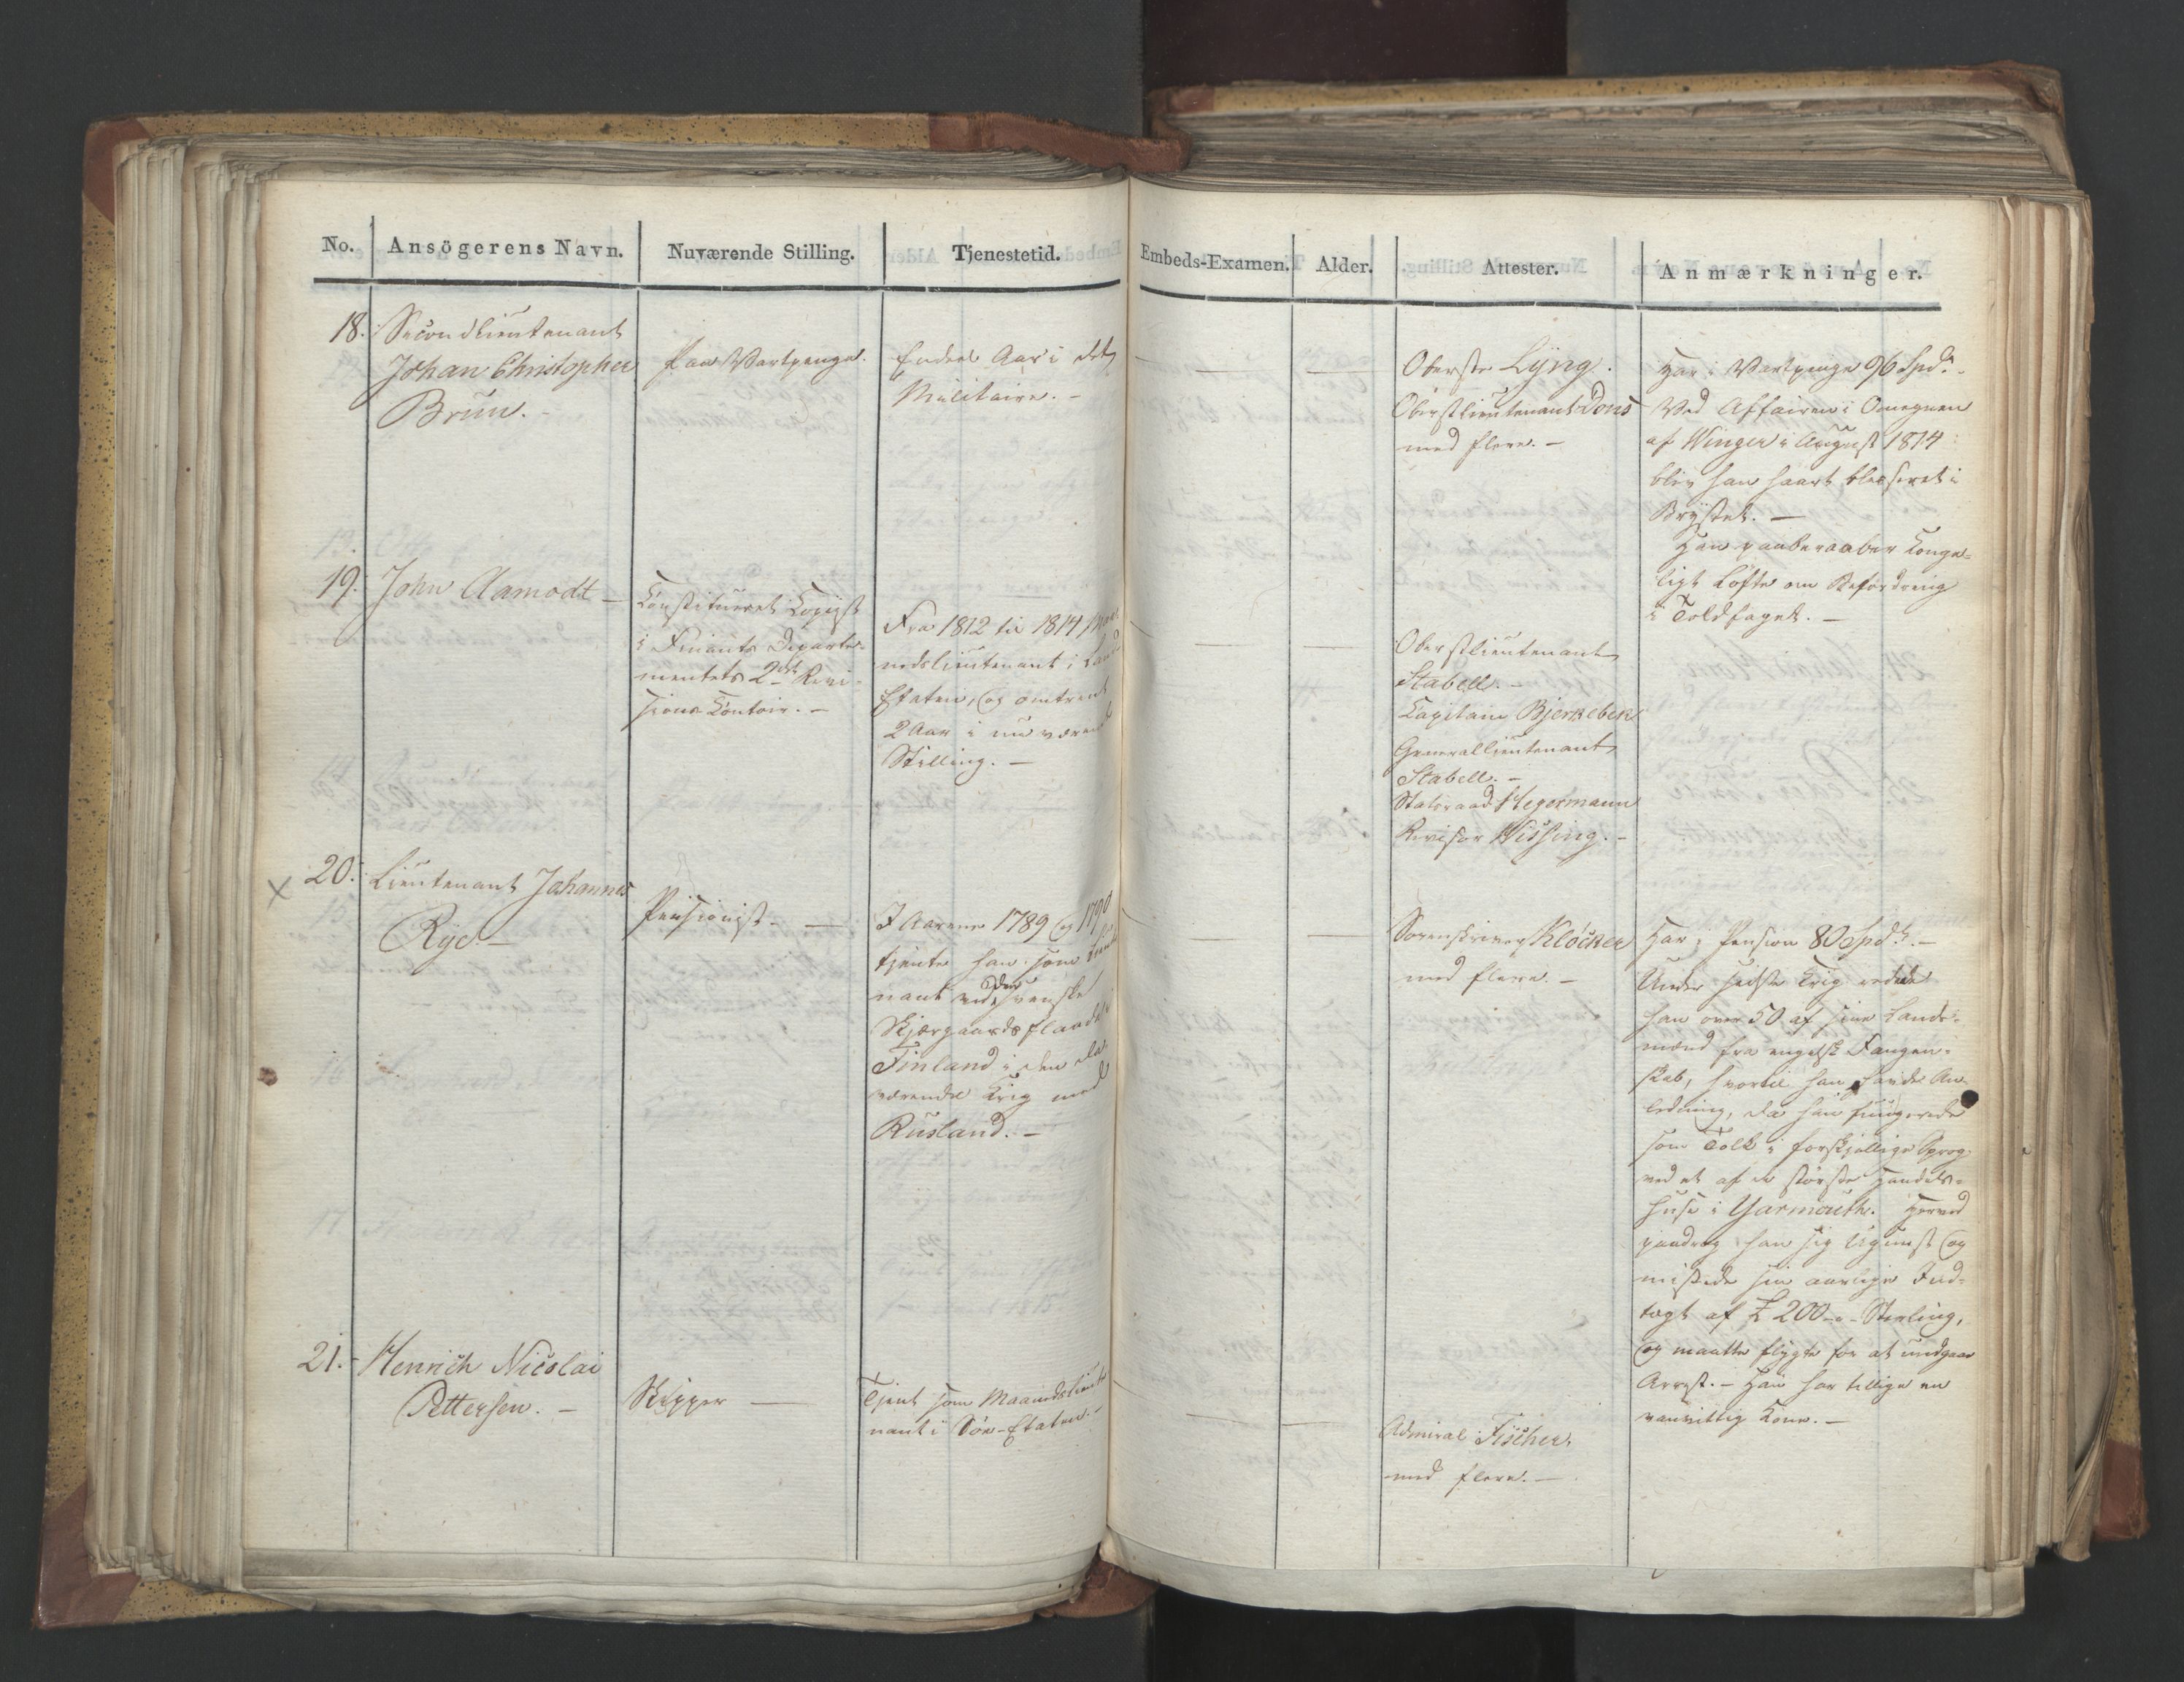 No. Ansögerens Navn. Nuværende Stilling. Tjenestetid. Embeds-Examen. Alder. Attester. Anmærkninger.
18. Secondlieutenant
Johan Christopher
Brun. -
Paa Vartpenge.
Endeel Aar i det
Militaire. -
Oberste Lyng.
Oberstlieutenant Dons
med flere. -
Har i Vartpenge 96 Spd.
Ved Affairen i Omegnen
af Winger i August 1814
blev han haart blesseret i
Brystet. -
Han paaberaaber Konge-
ligt Løfte om Befordring
i Toldfaget. -
19. John Aamodt -
Constitueret Copiist
i Finants Departe-
mentets 2det Revi-
sions Contoir. -
Fra 1812 til 1814 Maa-
nedslieutenant i Land
Etaten, og omtrent
2 Aar i nu værende
Stilling. -
Oberstlieutenant
Stabell. -
Capitain Bjerkebek
Generallieutenant
Stabell. -
Statsraad Hegermann
Revisor Wissing. -
20. Lieutenant Johannes
Rye. -
Pensionist. -
I Aarene 1789 og 1790
tjente han som Lieute
nant ved den svenske
Skjærgaards flaade i
Finland i den da
værende Krig med
Rusland. -
Sorenskriver Klöcker
med flere. -
Har i Pension 80 Spd. -
Under sidste Krig redede
han over 50 af sine Lands-
mænd fra engelsk Fangen-
skab, hvortil han havde An-
ledning, da han fungerede
som Tolk i forskjellige Sprog
ved et af de største Handels-
huse i Yarmouth. Herved
paadrog han sig Ugunst og
mistede sin aarlige Ind-
tægt af £ 200 Sterling,
og maatte flygte for at undgaae
Arrest. - Han har tillige en
vanvittig Kone. -
21. Henrich Nicolai
Pettersen. -
Skipper -
Tjent som Maanedslieute
nant i Søe-Etaten. -
Admiral Fischer
med flere. -